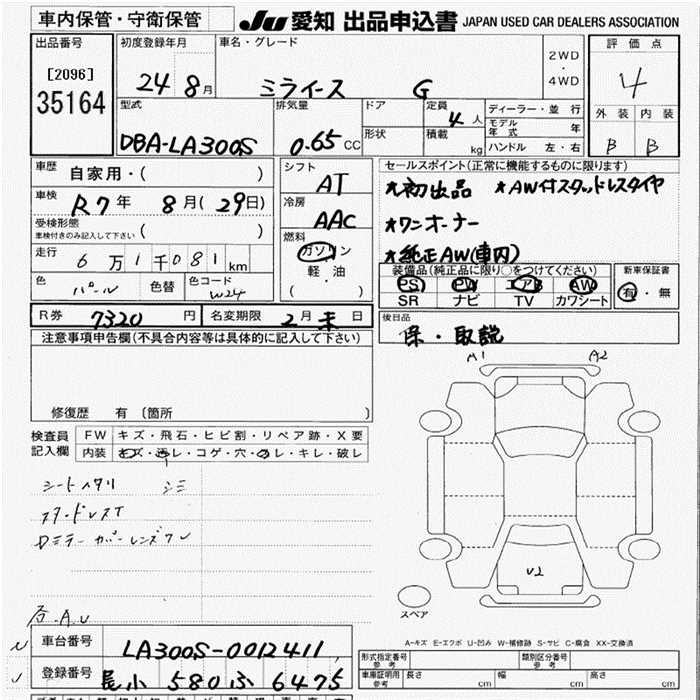 車内保管・守衛保管
JU 愛知 出品申込書 JAPAN USED CAR DEALERS ASSOCIATION
出品番号
[2096]
35164
初度登録年月
24 8月
車名・グレード
ミライース G
2WD
・
4WD
評価点
4
外装 内装
B B
型式
DBA-LA300S
排気量
0.65 CC
ドア
形状
定員
4人
積載
kg
ディーラー・並行
モデル年式 年
ハンドル 左・右
車歴
自家用・( )
車検
R7年 8月(29日)
受検形態
車検付きのみ記入して下さい ( )
走行
6万1千081km
色
パール
色替
色コード
W24
シフト
AT
冷房
AAC
燃料
ガソリン
軽油
( )
セールスポイント(正常に機能するものに限ります)
★初出品 ★AW付スタッドレスタイヤ
★ワンオーナー
★純正AW(車内)
装備品(純正品に限り○をつけてください)
PS PW エアB AW
SR ナビ TV カワシート
新車保証書
有・無
R券 7320円
名変期限 2月末日
後日品
保・取説
注意事項申告欄(不具合内容等は具体的に記入して下さい)
修復歴 有 〔箇所 〕
検査員
記入欄
FW キズ・飛石・ヒビ割・リペア跡・X要
内装 キズ・汚レ・コゲ・穴・スレ・キレ・破レ
シートヘタリ シミ
スタッドレスT
Dミラーカバーレンズワレ
A1 A2
U2
スペア
A-キズ E-エクボ U-凹み W-補修跡 S-サビ C-腐食 XX-交換済
車台番号
LA300S-0012411
登録番号
尾小 580 ふ 6475
形式指定番号
参考
類別区分番号
参考
車庫証明用
参考
長さ cm
幅 cm
高さ cm